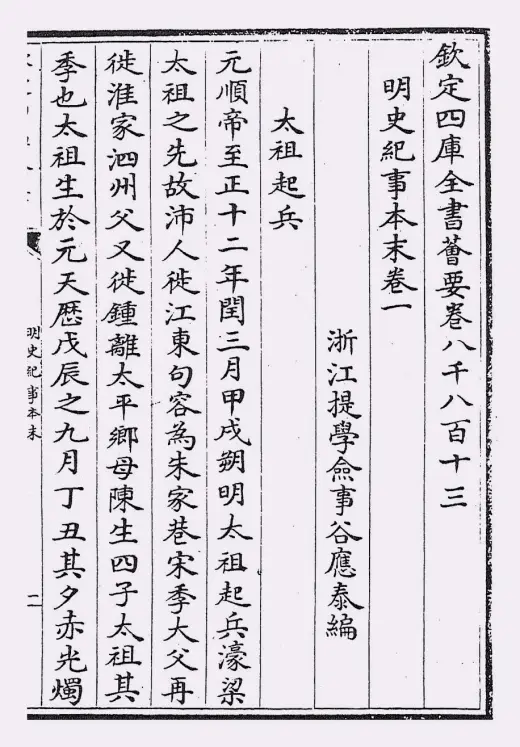 欽定四庫全書薈要卷八千八百十三
明史紀事本末卷一
浙江提學僉事谷應泰編
太祖起兵
元順帝至正十二年閏三月甲戌朔明太祖起兵濠梁
太祖之先故沛人徙江東句容為朱家巷宋季大父再
徙淮家泗州父又徙鍾離太平鄉母陳生四子太祖其
季也太祖生於元天歷戊辰之九月丁丑其夕赤光燭
明史紀事本末